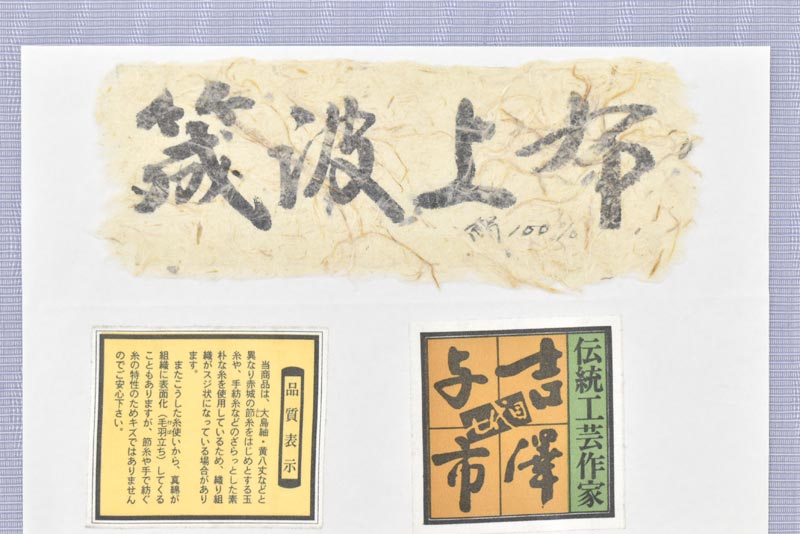 筬波上布
絹100%
品質表示
当商品は、大島紬・黄八丈などと
異なり赤城の節糸をはじめとする玉
糸や、手紡糸などのざらっとした素
朴な糸を使用しているため、織り組
織がスジ状になっている場合があり
ます。
またこうした糸使いから、真綿が
組織に表面化（毛羽立ち）してくる
こともありますが、節糸や手で紡ぐ
糸の特性のためキズではありません
のでご安心下さい。
伝統工芸作家
七代目
吉澤
与市